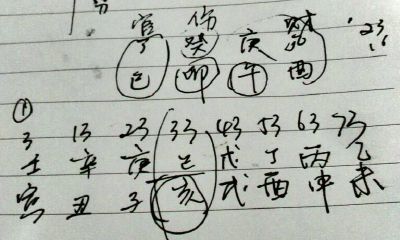 分
官 伤 财 23
丁 癸 庚 乙 16
巳 卯 午 酉
①
3 13 23 33 43 53 63 73
壬 辛 庚 己 戊 丁 丙 乙
寅 丑 子 亥 戌 酉 申 未